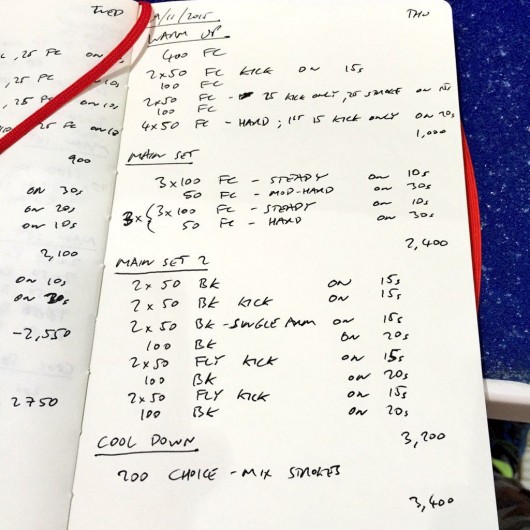 WED
, 25 FC ON
, 25 FC ON 10s
, 25 FC ON 10s
, 25 FC ON 10s
900
ON 30s
ON 20s
ON 10s
2,100
ON 10s
ON 30s
-2,550
2750
/11/2015 THU
WARM UP
400 FC
2x50 FC KICK ON 15s
100 FC
2x50 FC - 25 KICK ONLY, 25 STROKE ON 15s
100 FC
4x50 FC - HARD; 1ST 15 KICK ONLY ON 20s
1,000
MAIN SET
3x100 FC - STEADY ON 10s
50 FC - MOD-HARD ON 30s
3x{3x100 FC - STEADY ON 10s
50 FC - HARD ON 30s
2,400
MAIN SET 2
2x50 BK ON 15s
2x50 BK KICK ON 15s
2x50 BK - SINGLE ARM ON 15s
100 BK ON 20s
2x50 FLY KICK ON 15s
100 BK ON 20s
2x50 FLY KICK ON 15s
100 BK ON 20s
3,200
COOL DOWN
200 CHOICE - MIX STROKES
3,400